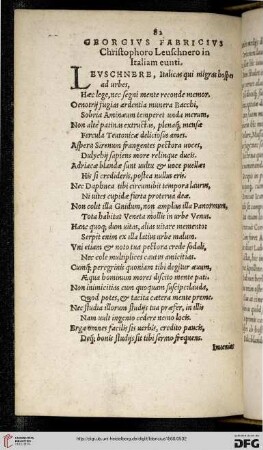 82
GEORGIVS FABRICIVS
Christophoro Leuschnero in
Italiam eunti.
LEVSCHNERE, Italicas qui migras hospes
ad urbes,
Hæc lege, nec segni mente reconde memor.
Oenotrij fugias ardentia munera Bacchi,
Sobria Amineum temperet unda merum,
Non alté patinas extructas, plenasq; mensas
Fercula Teutonicæ deliciosa ames.
Aspera Sirenum frangentes pectora uoces,
Dulychij sapiens more relinque ducis.
Adriacæ blandæ sunt uultu & uoce puellæ:
His si credideris, postea nullus eris.
Nec Daphnea tibi circumdes tempora laurum,
Ni uites cupidæ furta proterua deæ.
Non colit illa Gnidum, non amplius illa Panormum,
Tota habitat Veneta mollis in urbe Venus.
Hæc quoq; dum uitas, alias uitare memento:
Serpit enim ex illa latius urbe malum.
Vni etiam & noto tua pectora crede sodali,
Nec cole multiplices cautus amicitias.
Cumq; peregrinis quoniam tibi degitur æuum,
Aequa hominum mores discito mente pati.
Non inimicitias cum quoquam suscipe laudas,
Quod potes, & tacita cætera mente preme.
Nec studia illorum studijs tua præfer, in illis
Nam uult ingenio cedere nemo locis.
Erga omnes facilis sis uerbis, credito paucis,
Deq; bonis studijs sit tibi sermo frequens.
Inuenias
http://digi.ub.uni-heidelberg.de/diglit/
DFG